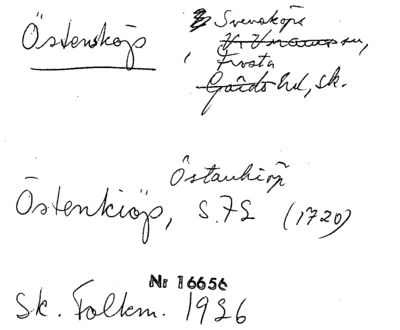 Östensköp
Svensköps
V. Vram sn,
Frosta
Gärds hd, sk.
Östankiöp
Östenkiöp, S.72 (1720)
Nr 16656
Sk. Folkm. 1936